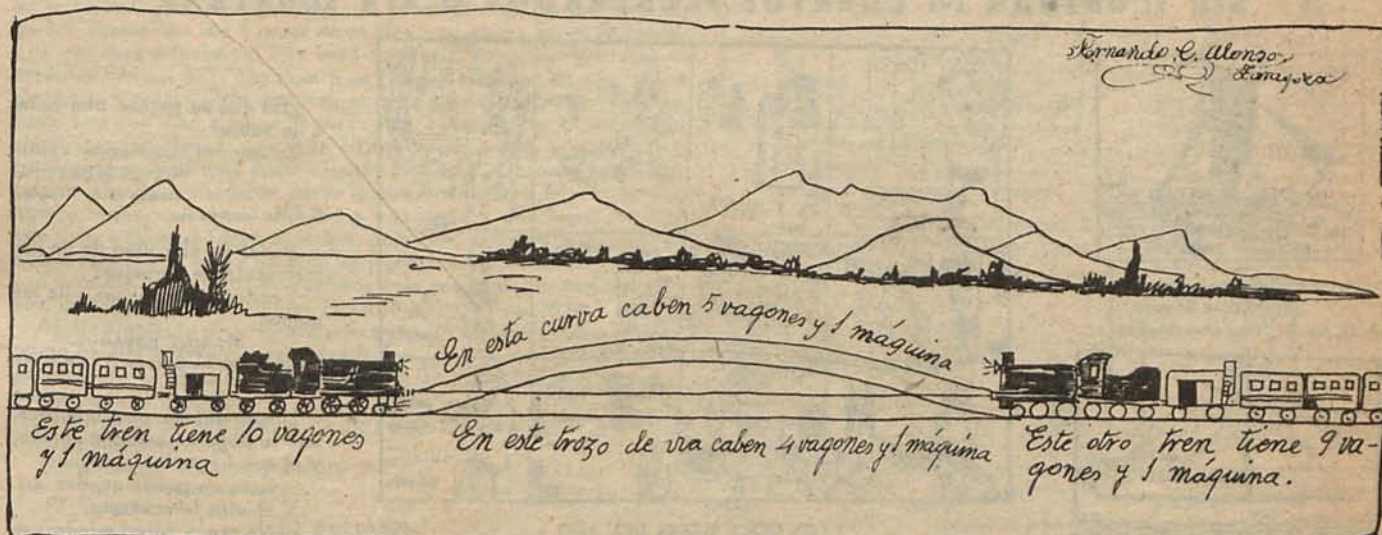 Fernando C. Alonso
Zaragoza
En esta curva caben 5 vagones y 1 máquina
Este tren tiene 10 vagones
y 1 máquina
En este trozo de via caben 4 vagones y 1 máquina
Este otro tren tiene 9 va-
gones y 1 máquina.